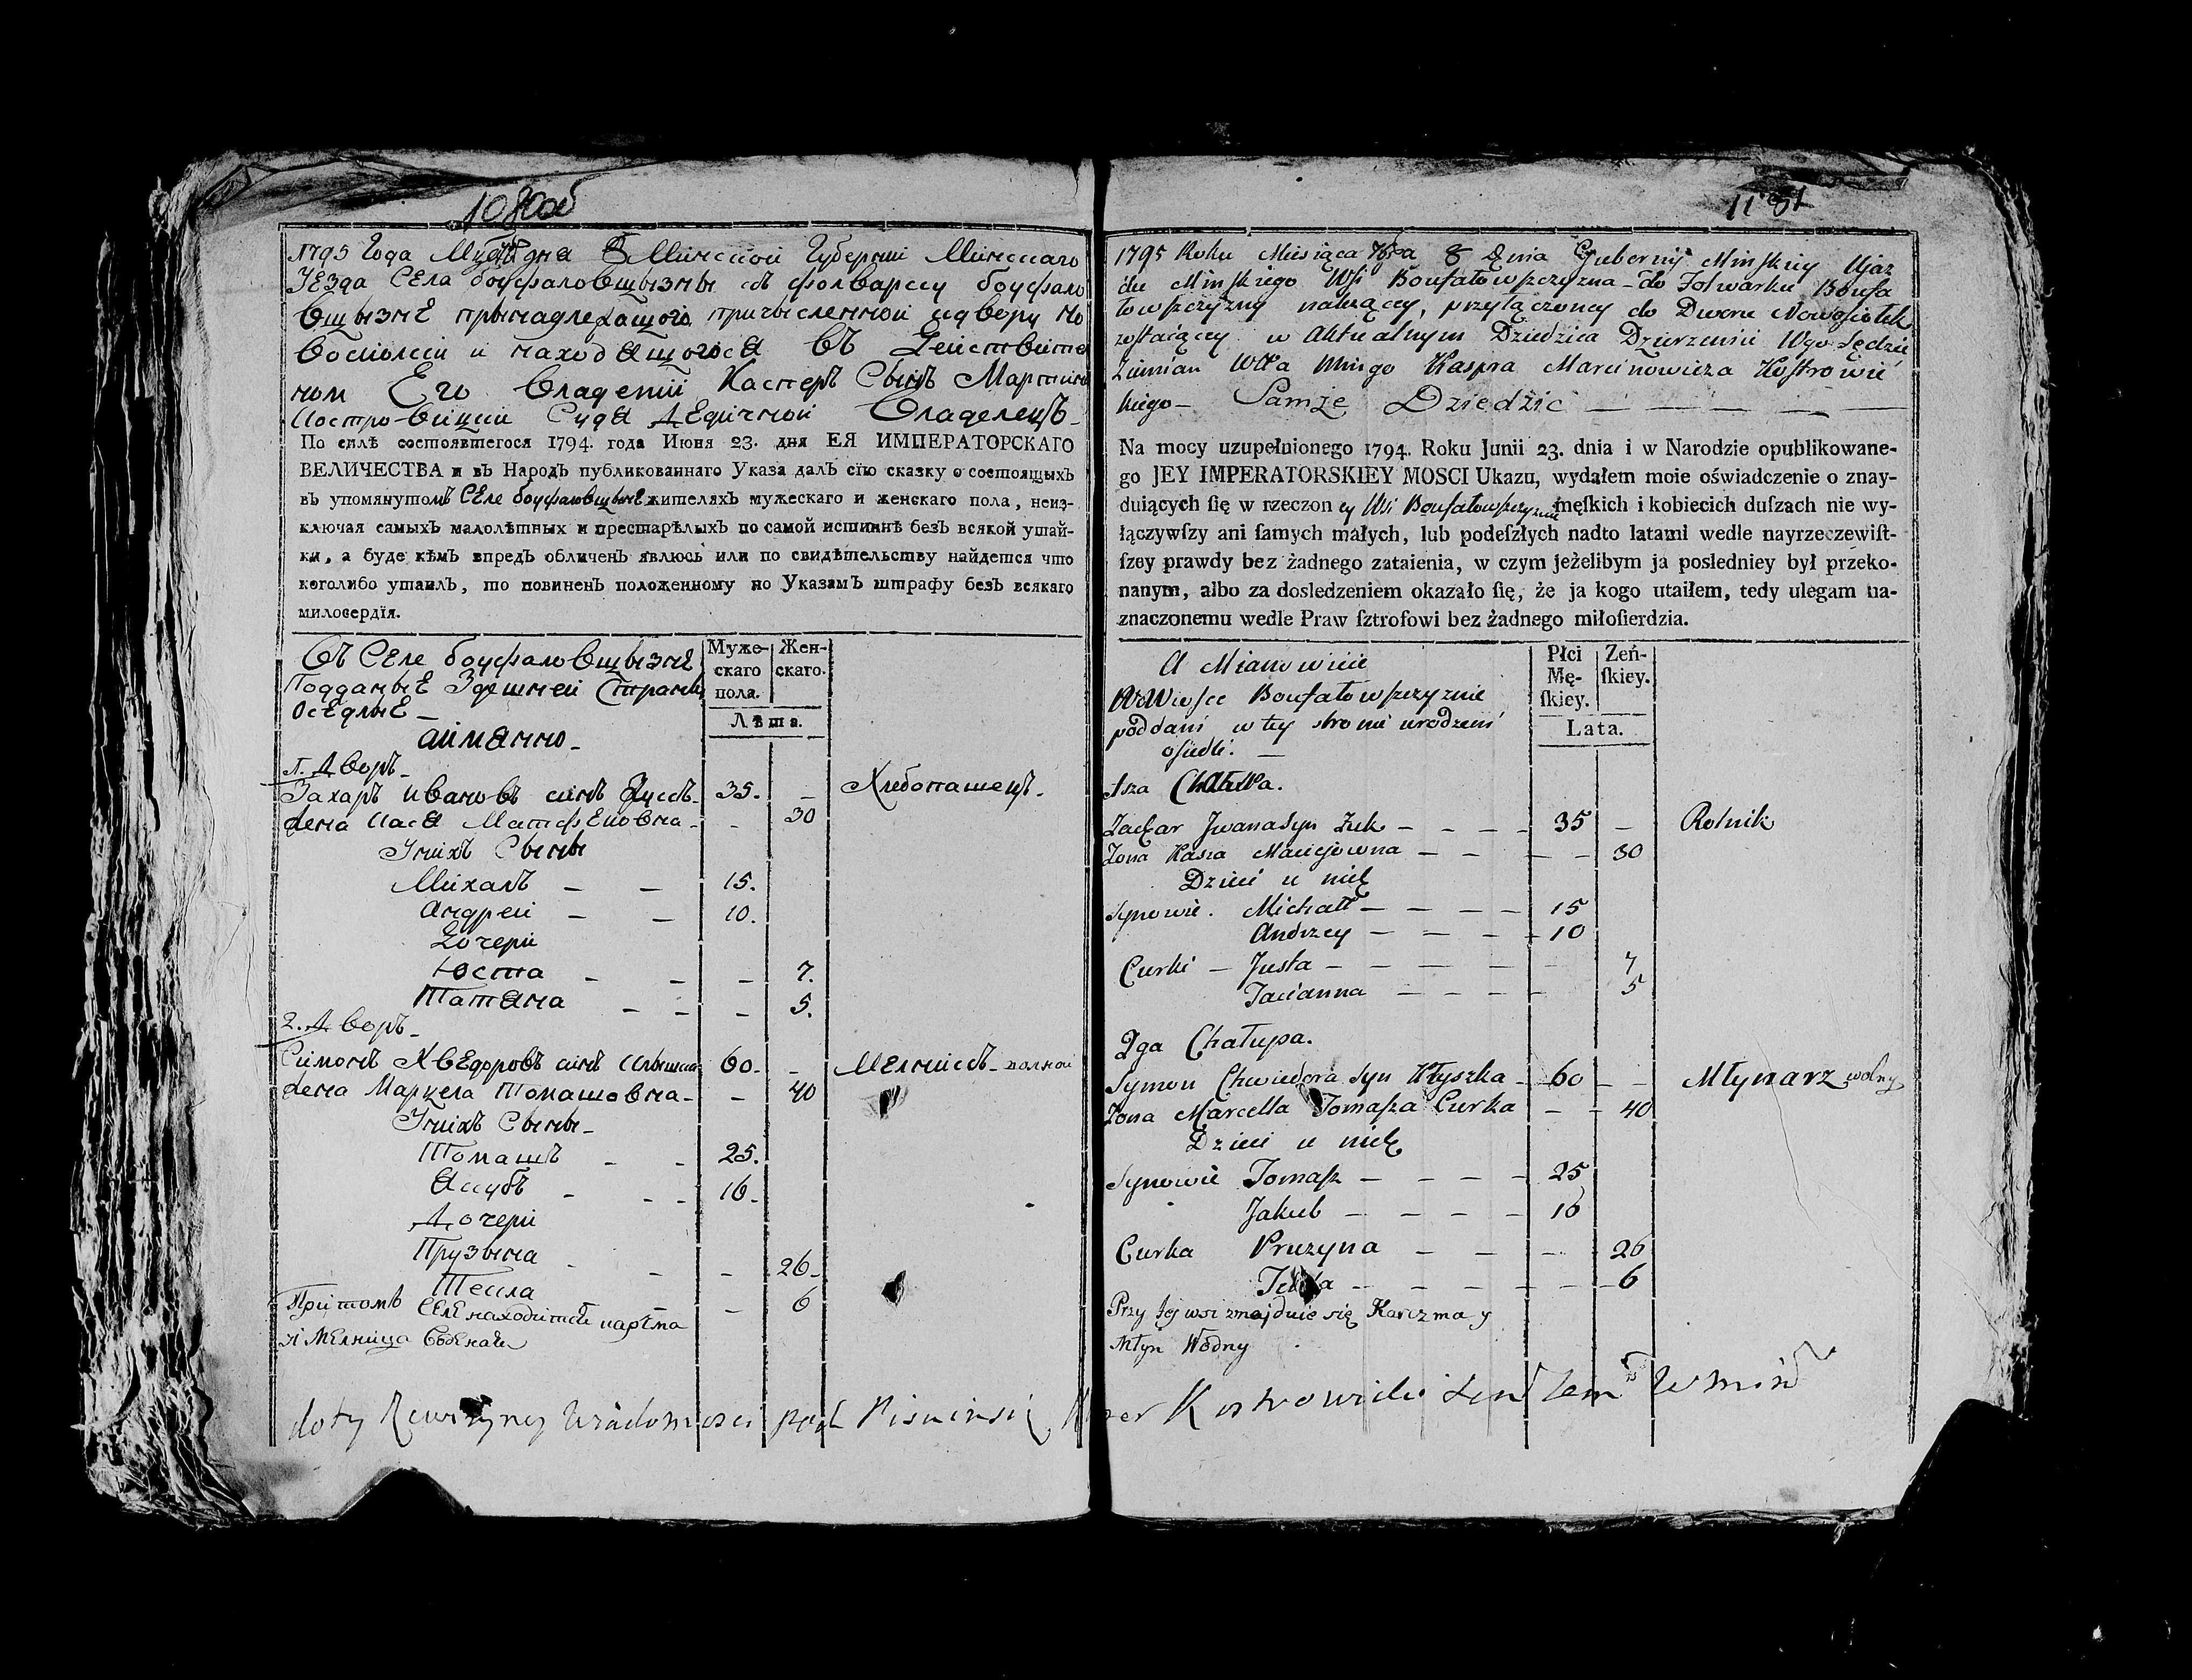 1795 Года Минской Губернии Минскаго
Уезда Села боуфаловщызны съ фолварку боуфало
вщызне прынадлежащого причысленной
и находящогося въ
Его Владении Касперъ Сынъ
Суда Дедичной Владелецъ
По силѣ состоявшегося 1794. года Іюня 23. дня ЕЯ ИМПЕРАТОРСКАГО
ВЕЛИЧЕСТВА и въ Народъ публикованнаго Указа далъ сїю сказку о состоящыхъ
въ упомянутомъ Селе боуфаловщызне жителяхъ мужескаго и женскаго пола, неиз-
ключая самыхъ малолѣтныхъ и престарѣлыхъ по самой истиннѣ безъ всякой утай-
ки, а буде кѣмъ впредь обличенъ явлюсь или по свидѣтельству найдется что
коголибо утаилъ, то повиненъ положенному по Указамъ штрафу безъ всякаго
милосердїя.
Въ Селе боуфаловщызне
Подданые Здешней Страны
Оседлые
аймянно
Муже-
скаго
пола.
Жен-
скаго.
Лѣта.
1. Дворъ
Захаръ Ивановъ сынъ Жукъ 35. — Хлебопашецъ
жена Кася Матфеювна — 30
У них Сыны
Михалъ — — 15.
Андрей — — 10.
Дочери
Юста — — — 7.
Татяна — — — 5.
2. Дворъ
Симонъ Хведоровъ сынъ Клышка 60 — Мелникъ волной
жена Марцела Томашовна — 40
У них Сыны
Томашъ — — 25.
Якубъ — — 16
Дочери
Прузына — — 26
Текла — — 6
При томъ селе находится карчма
и Мелница Водяная
11 81
1795 Roku Miesiąca 8 Dnia Gubernij Minskiey Ujaz
du Minskiego Wsi Boufałowszczyzna do Folwarku Boufa
łowszczyzny należącey, przyłączoney do Dworu Nowosiołek
zostaiącey w Aktualnym Dziedzica Dzierżeniu Wgo Sędzie
Ziemian Wttwa Minsgo Kaspra Marcinowicza Kostrowic
kiego — Samże Dziedzic — — — — —
Na mocy uzupełnionego 1794. Roku Junii 23. dnia i w Narodzie opublikowane-
go JEY IMPERATORSKIEY MOSCI Ukazu, wydałem moie oświadczenie o znay-
duiących ſię w rzeczoney Wsi Boufałowszczyznie męſkich i kobiecich duſzach nie wy-
łączywſzy ani ſamych małych, lub podeſzłych nadto latami wedle nayrzeczewiſt-
ſzey prawdy bez żadnego zataienia, w czym jeżelibym ja posledniey był przeko-
nanym, albo za dosledzeniem okazało ſię, że ja kogo utaiłem, tedy ulegam na-
znaczonemu wedle Praw ſztrofowi bez żadnego miłoſierdzia.
A Mianowicie
W Wiosce Boufałowszczyznie
poddani w tey stronie urodzeni
osiedli. —
Płci
Mę-
ſkiey.
Zeń-
ſkiey.
Lata.
1sza Chałupa.
Zachar Jwana syn Żuk — — — — 35 — Rolnik
Żona Kasia Maciejowna — — — — 30
Dzieci u nich
Synowie. Michał — — — — 15
Andrzey — — — — 10
Curki — Justa — — — — — 7
Tacianna — — — — 5
2ga Chałupa.
Symon Chwiedora syn Kłyszka — 60 — — Młynarz wolny
Żona Marcella Tomasza Curka — — 40
Dzieci u nich
Synowie Tomasz — — — — 25
Jakub — — — — 16
Curka Pruzyna — — — — 26
Tekla — — — — — — 6
Przy tey wsi znajduie się Karczma y
Młyn Wodny
do ty Rewizyney Wiadomosci podpisuiesię Kasper Kostrowicki